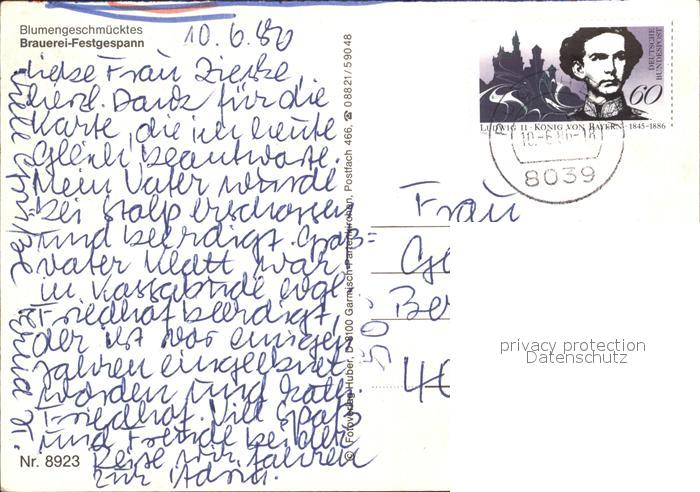 Blumengeschmücktes
Brauerei-Festgespann
10.6.80
Liebe Frau Zieske
Herzl. Dank für die
Karte, die ich heute
Gleich beantworte.
Mein Vater wurde
bei Stolp erschossen
und beerdigt. Groß=
vater Klatt war
in Kassabude
Friedhof beerdigt,
der ist vor einigen
Jahren eingeebnet
worden und
Friedhof. Viel Spaß
und Freude bei der
Reise wir fahren
zur Adria.
Viele Grüße
Nr. 8923
© Fotoverlag Huber, D-8100 Garmisch-Partenkirchen, Postfach 466, ☎ 0 88 21 / 5 90 48
DEUTSCHE
BUNDESPOST
60
LUDWIG II · KÖNIG VON BAYERN · 1845-1886
10.-6.86-18
8039
Frau
Ge
Ber
50
40
privacy protection
Datenschutz